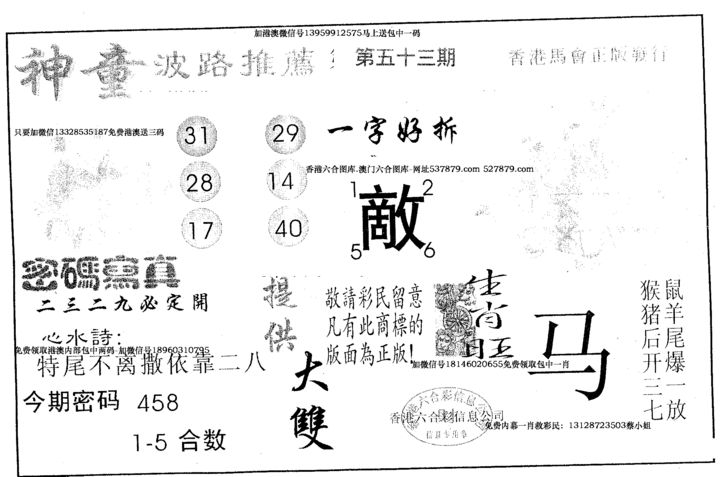 加港澳微信号13959912575马上送包中一码
神童 波路推薦
第五十三期
香港馬會正版發行
只要加微信13328535187免费港澳送三码
31 29
28 14
17 40
一字好拆
香港六合图库-澳门六合图库-网址537879.com 527879.com
1 2
敵
5 6
密碼寫真
二三二九必定開
心水詩:
免费领取港澳内部包中两码-加微信号18960310795
特尾不离撒依靠二八
今期密码 458
1-5 合数
提供
大雙
敬請彩民留意
凡有此商標的
版面為正版!
生肖旺
马
加微信号18146020655免费领取包中一肖
鼠羊尾爆一放
猴猪后开三七
香港六合彩信息公司
免费内幕一肖救彩民: 13128723503蔡小姐